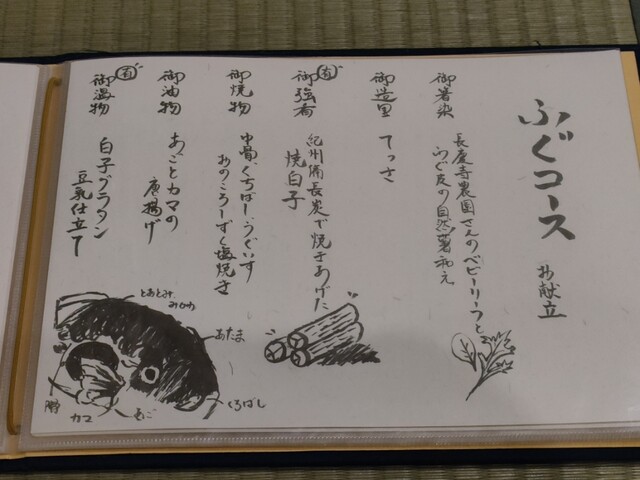 ふぐコース お献立
御箸染
長慶寺農園さんのベビーリーフと
ふぐ皮の自然薯和え
御造里
てっさ
御強肴
有
紀州備長炭で焼きあげた
焼白子
御焼物
中骨・くちばし・うぐいす
あのころーずく塩焼き
御油物
あごとカマの
唐揚げ
御温物
有
白子グラタン
豆乳仕立て
とおとみ
みかわ
あたま
くちばし
あご
カマ